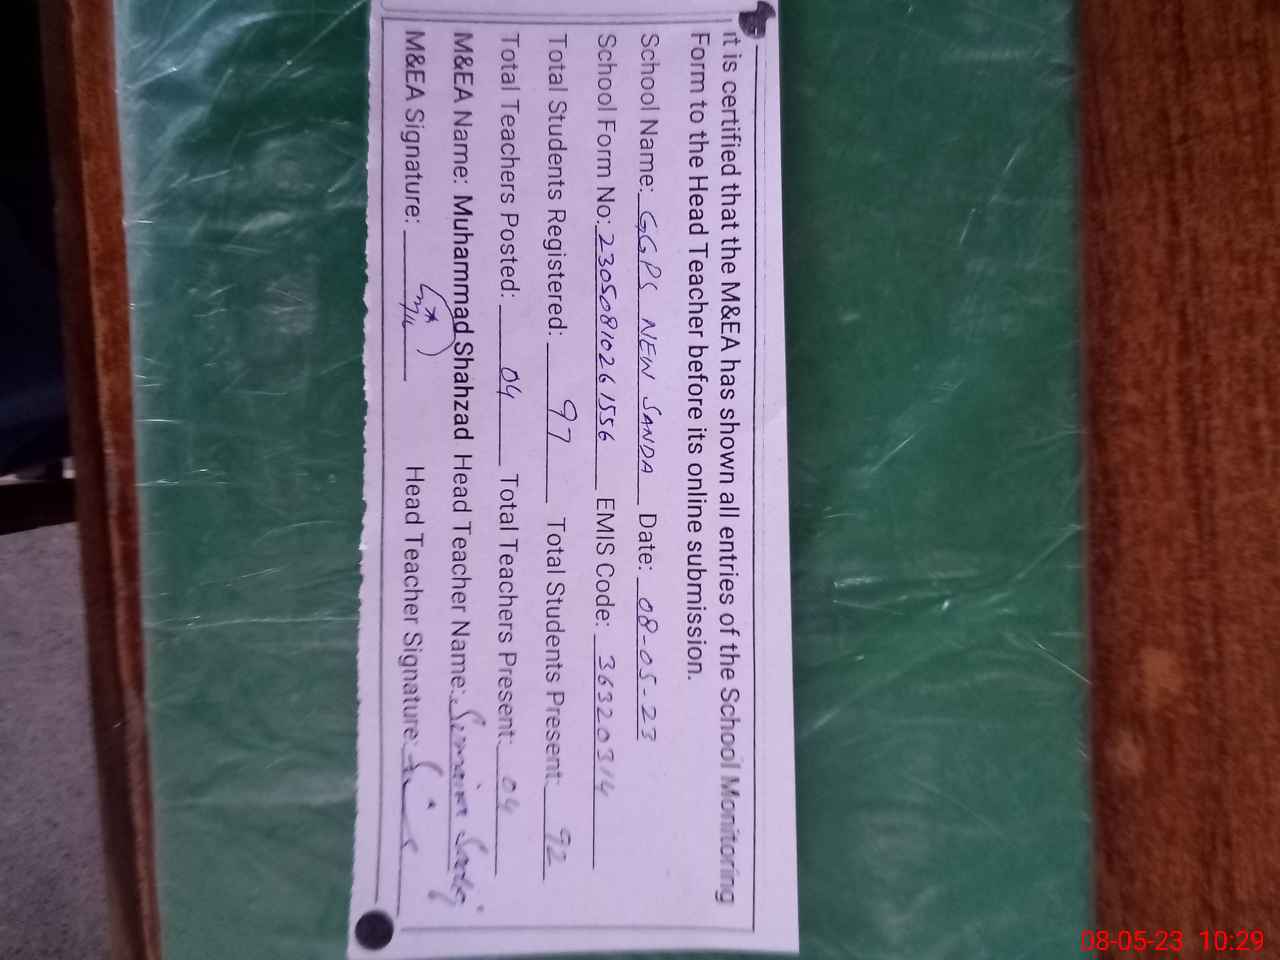 It is certified that the M&EA has shown all entries of the School Monitoring
Form to the Head Teacher before its online submission.
School Name: GGPS NEW SANDA Date: 08-05-23
School Form No: 23050810261556 EMIS Code: 36320314
Total Students Registered: 97 Total Students Present: 92
Total Teachers Posted: 04 Total Teachers Present: 04
M&EA Name: Muhammad Shahzad Head Teacher Name: Sumaira
M&EA Signature: Head Teacher Signature:
08-05-23 10:29